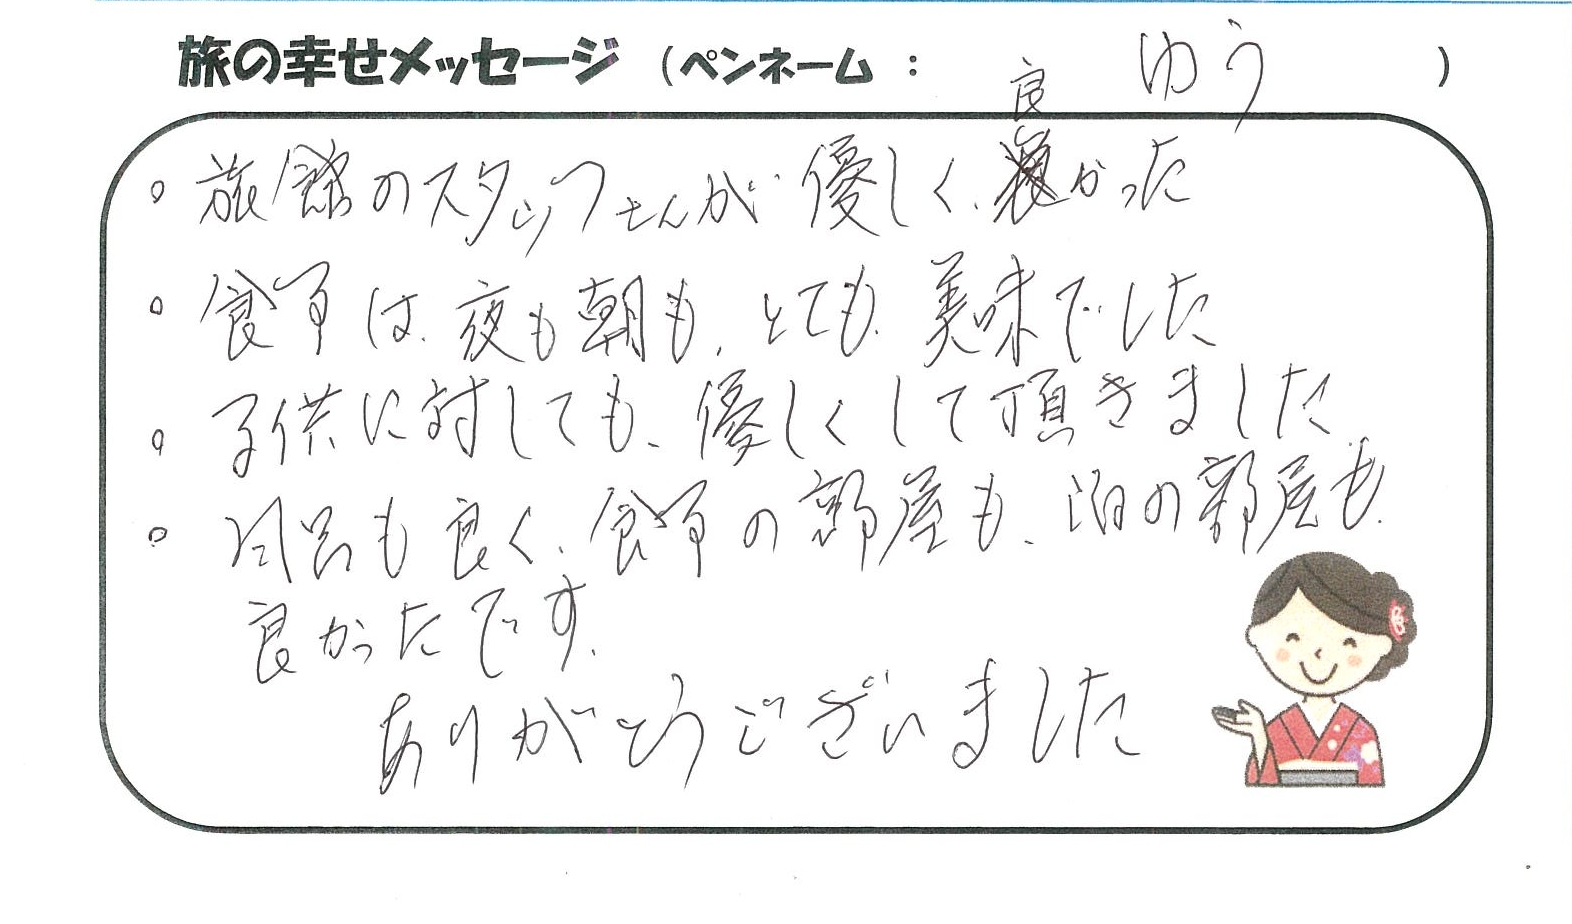 旅の幸せメッセージ (ペンネーム : ゆう )
。旅館のスタッフさんが優しく、良かった
。食事は、夜も朝も、とても、美味でした
。子供に対しても、優しくして頂きました
。風呂も良く、食事の部屋も、泊の部屋も、
良かったです。
ありがとうございました